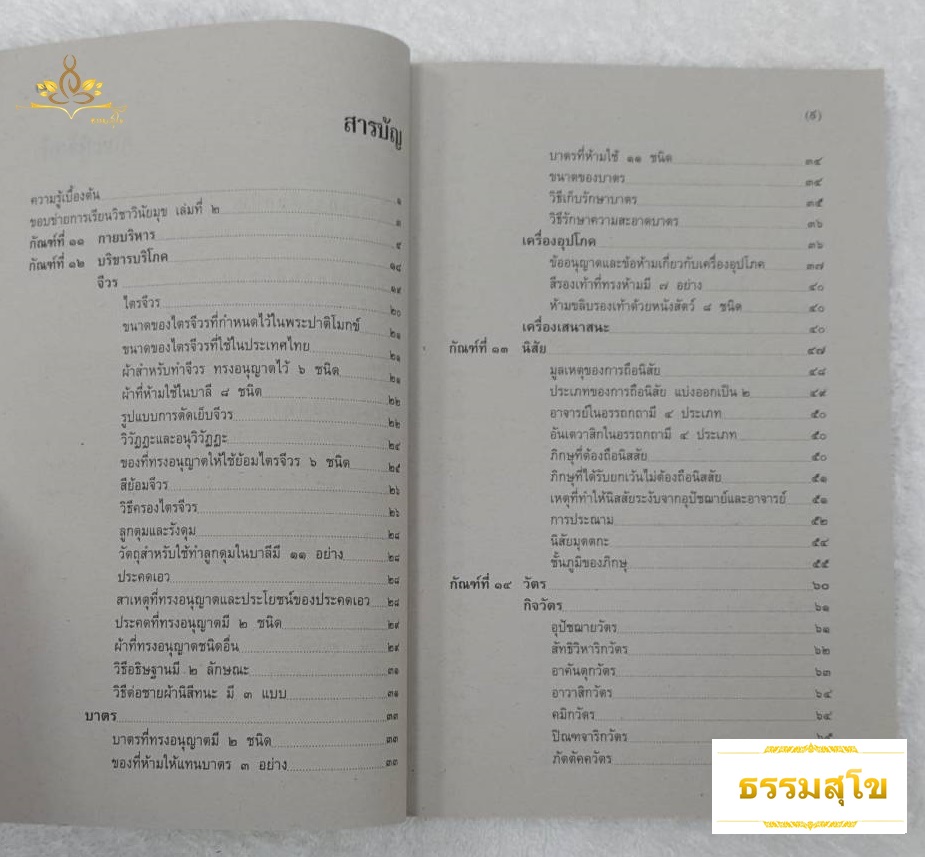 สารบัญ
ความรู้เบื้องต้น ๑
ขอบข่ายการเรียนวิชาวินัยมุข เล่มที่ ๒ ๓
กัณฑ์ที่ ๑๑ กายบริหาร ๙
กัณฑ์ที่ ๑๒ บริขารบริโภค ๑๘
จีวร ๑๙
ไตรจีวร ๒๐
ขนาดของไตรจีวรที่กำหนดไว้ในพระปาติโมกข์ ๒๑
ขนาดของไตรจีวรที่ใช้ในประเทศไทย ๒๑
ผ้าสำหรับทำจีวร ทรงอนุญาตไว้ ๖ ชนิด ๒๑
ผ้าที่ห้ามใช้ในบาลี ๘ ชนิด ๒๒
รูปแบบการตัดเย็บจีวร ๒๒
วิวัฏฏะและอนุวิวัฏฏะ ๒๔
ของที่ทรงอนุญาตให้ใช้ย้อมไตรจีวร ๖ ชนิด ๒๕
สีย้อมจีวร ๒๖
วิธีครองไตรจีวร ๒๖
ลูกดุมและรังดุม ๒๘
วัตถุสำหรับใช้ทำลูกดุมในบาลีมี ๑๑ อย่าง ๒๘
ประคดเอว ๒๘
สาเหตุที่ทรงอนุญาตและประโยชน์ของประคดเอว ๒๘
ประคดที่ทรงอนุญาตมี ๒ ชนิด ๒๙
ผ้าที่ทรงอนุญาตชนิดอื่น ๒๙
วิธีอธิษฐานมี ๒ ลักษณะ ๓๑
วิธีต่อชายผ้านิสีทนะ มี ๓ แบบ ๓๑
บาตร ๓๓
บาตรที่ทรงอนุญาตมี ๒ ชนิด ๓๓
ของที่ห้ามให้แทนบาตร ๓ อย่าง ๓๓
(๕)
บาตรที่ห้ามใช้ ๑๑ ชนิด ๓๔
ขนาดของบาตร ๓๔
วิธีเก็บรักษาบาตร ๓๕
วิธีรักษาความสะอาดบาตร ๓๖
เครื่องอุปโภค ๓๖
ข้ออนุญาตและข้อห้ามเกี่ยวกับเครื่องอุปโภค ๓๗
สีรองเท้าที่ทรงห้ามมี ๗ อย่าง ๔๐
ห้ามขลิบรองเท้าด้วยหนังสัตว์ ๘ ชนิด ๔๐
เครื่องเสนาสนะ ๔๐
กัณฑ์ที่ ๑๓ นิสัย ๔๗
มูลเหตุของการถือนิสัย ๔๘
ประเภทของการถือนิสัย แบ่งออกเป็น ๒ ๔๙
อาจารย์ในอรรถกถามี ๔ ประเภท ๕๐
อันเตวาสิกในอรรถกถามี ๔ ประเภท ๕๐
ภิกษุที่ต้องถือนิสสัย ๕๐
ภิกษุที่ได้รับยกเว้นไม่ต้องถือนิสสัย ๕๑
เหตุที่ทำให้นิสสัยระงับจากอุปัชฌาย์และอาจารย์ ๕๑
การประณาม ๕๒
นิสัยมุตตกะ ๕๔
ชั้นภูมิของภิกษุ ๕๕
กัณฑ์ที่ ๑๔ วัตร ๖๐
กิจวัตร ๖๑
อุปัชฌายวัตร ๖๑
สัทธิวิหาริกวัตร ๖๒
อาคันตุกวัตร ๖๓
อาวาสิกวัตร ๖๔
คมิกวัตร ๖๔
ปิณฑจาริกวัตร ๖๕
ภัตตัคควัตร
ธรรมสุโข